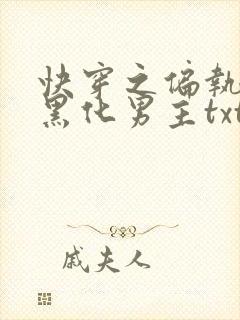 快穿之偏執
黑化男主txt
戚夫人